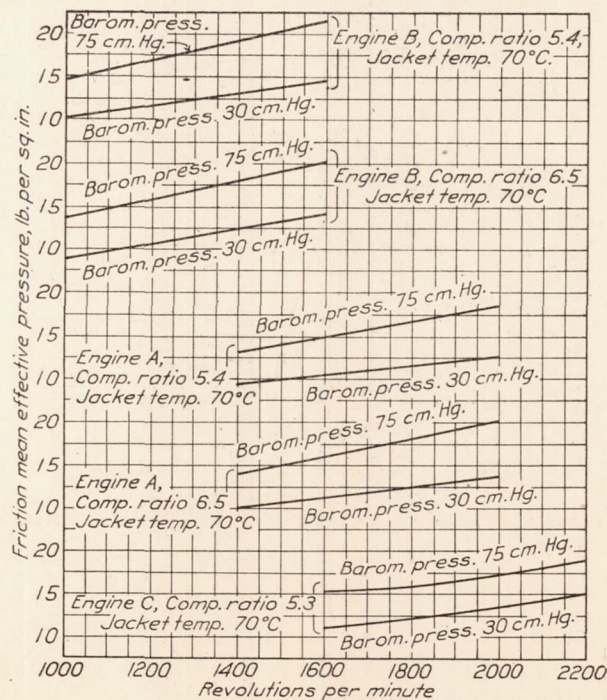 Friction mean effective pressure, lb. per sq. in.
20
15
10
Barom. press.
75 cm. Hg.
Engine B, Comp. ratio 5.4,
Jacket temp. 70°C.
Barom. press. 30 cm. Hg.
20
15
10
Barom. press. 75 cm. Hg.
Engine B, Comp. ratio 6.5
Jacket temp. 70°C
Barom. press. 30 cm. Hg.
20
15
10
Barom. press. 75 cm. Hg.
Engine A,
Comp. ratio 5.4
Jacket temp. 70°C
Barom. press. 30 cm. Hg.
20
15
10
Barom. press. 75 cm. Hg.
Engine A,
Comp. ratio 6.5
Jacket temp. 70°C
Barom. press. 30 cm. Hg.
20
15
10
Barom. press. 75 cm. Hg.
Engine C, Comp. ratio 5.3
Jacket temp. 70°C
Barom. press. 30 cm. Hg.
1000 1200 1400 1600 1800 2000 2200
Revolutions per minute